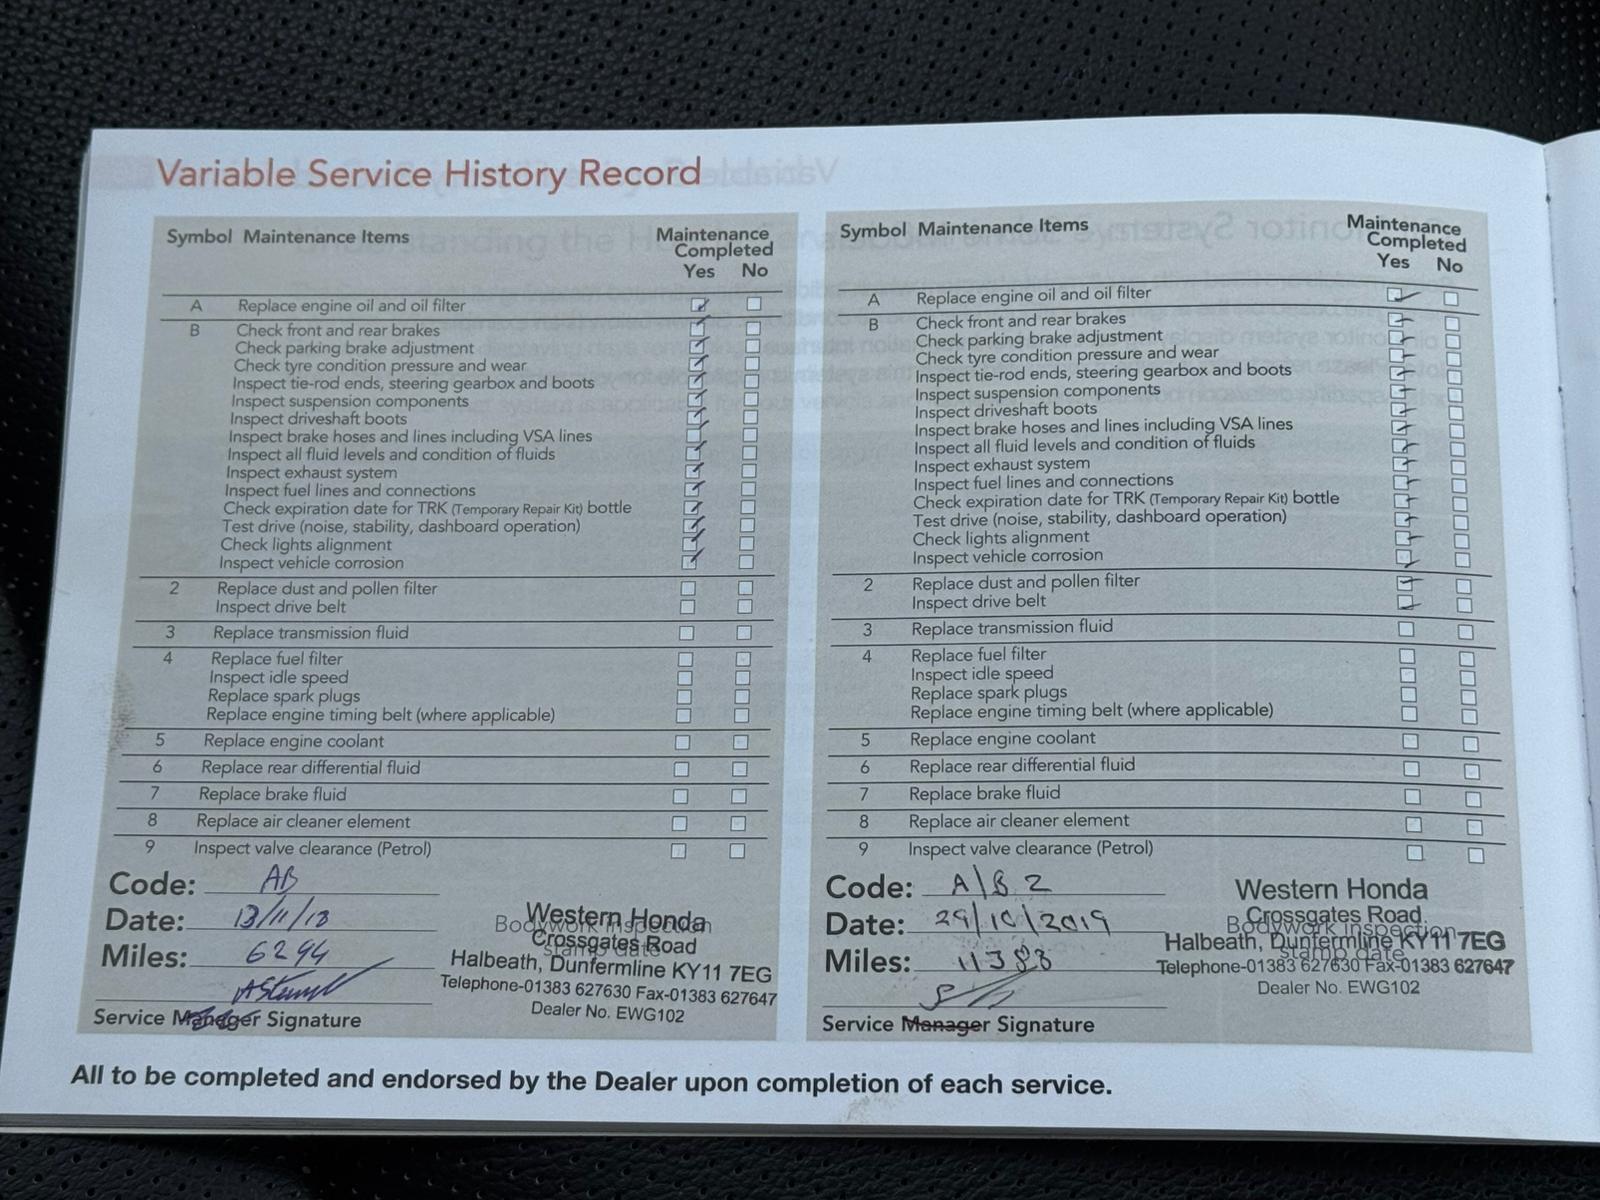 Variable Service History Record
Symbol Maintenance Items Maintenance Completed
Yes No
A Replace engine oil and oil filter
B Check front and rear brakes
Check parking brake adjustment
Check tyre condition pressure and wear
Inspect tie-rod ends, steering gearbox and boots
Inspect suspension components
Inspect driveshaft boots
Inspect brake hoses and lines including VSA lines
Inspect all fluid levels and condition of fluids
Inspect exhaust system
Inspect fuel lines and connections
Check expiration date for TRK (Temporary Repair Kit) bottle
Test drive (noise, stability, dashboard operation)
Check lights alignment
Inspect vehicle corrosion
2 Replace dust and pollen filter
Inspect drive belt
3 Replace transmission fluid
4 Replace fuel filter
Inspect idle speed
Replace spark plugs
Replace engine timing belt (where applicable)
5 Replace engine coolant
6 Replace rear differential fluid
7 Replace brake fluid
8 Replace air cleaner element
9 Inspect valve clearance (Petrol)
Code: AB
Date: 13/11/18
Miles: 6294
Service Manager Signature
Bodywork Inspection
stamp date
Western Honda
Crossgates Road
Halbeath, Dunfermline KY11 7EG
Telephone-01383 627630 Fax-01383 627647
Dealer No. EWG102
Symbol Maintenance Items Maintenance Completed
Yes No
A Replace engine oil and oil filter
B Check front and rear brakes
Check parking brake adjustment
Check tyre condition pressure and wear
Inspect tie-rod ends, steering gearbox and boots
Inspect suspension components
Inspect driveshaft boots
Inspect brake hoses and lines including VSA lines
Inspect all fluid levels and condition of fluids
Inspect exhaust system
Inspect fuel lines and connections
Check expiration date for TRK (Temporary Repair Kit) bottle
Test drive (noise, stability, dashboard operation)
Check lights alignment
Inspect vehicle corrosion
2 Replace dust and pollen filter
Inspect drive belt
3 Replace transmission fluid
4 Replace fuel filter
Inspect idle speed
Replace spark plugs
Replace engine timing belt (where applicable)
5 Replace engine coolant
6 Replace rear differential fluid
7 Replace brake fluid
8 Replace air cleaner element
9 Inspect valve clearance (Petrol)
Code: A/B 2
Date: 29/10/2019
Miles: 11388
Service Manager Signature
Bodywork Inspection
stamp date
Western Honda
Crossgates Road
Halbeath, Dunfermline KY11 7EG
Telephone-01383 627630 Fax-01383 627647
Dealer No. EWG102
All to be completed and endorsed by the Dealer upon completion of each service.